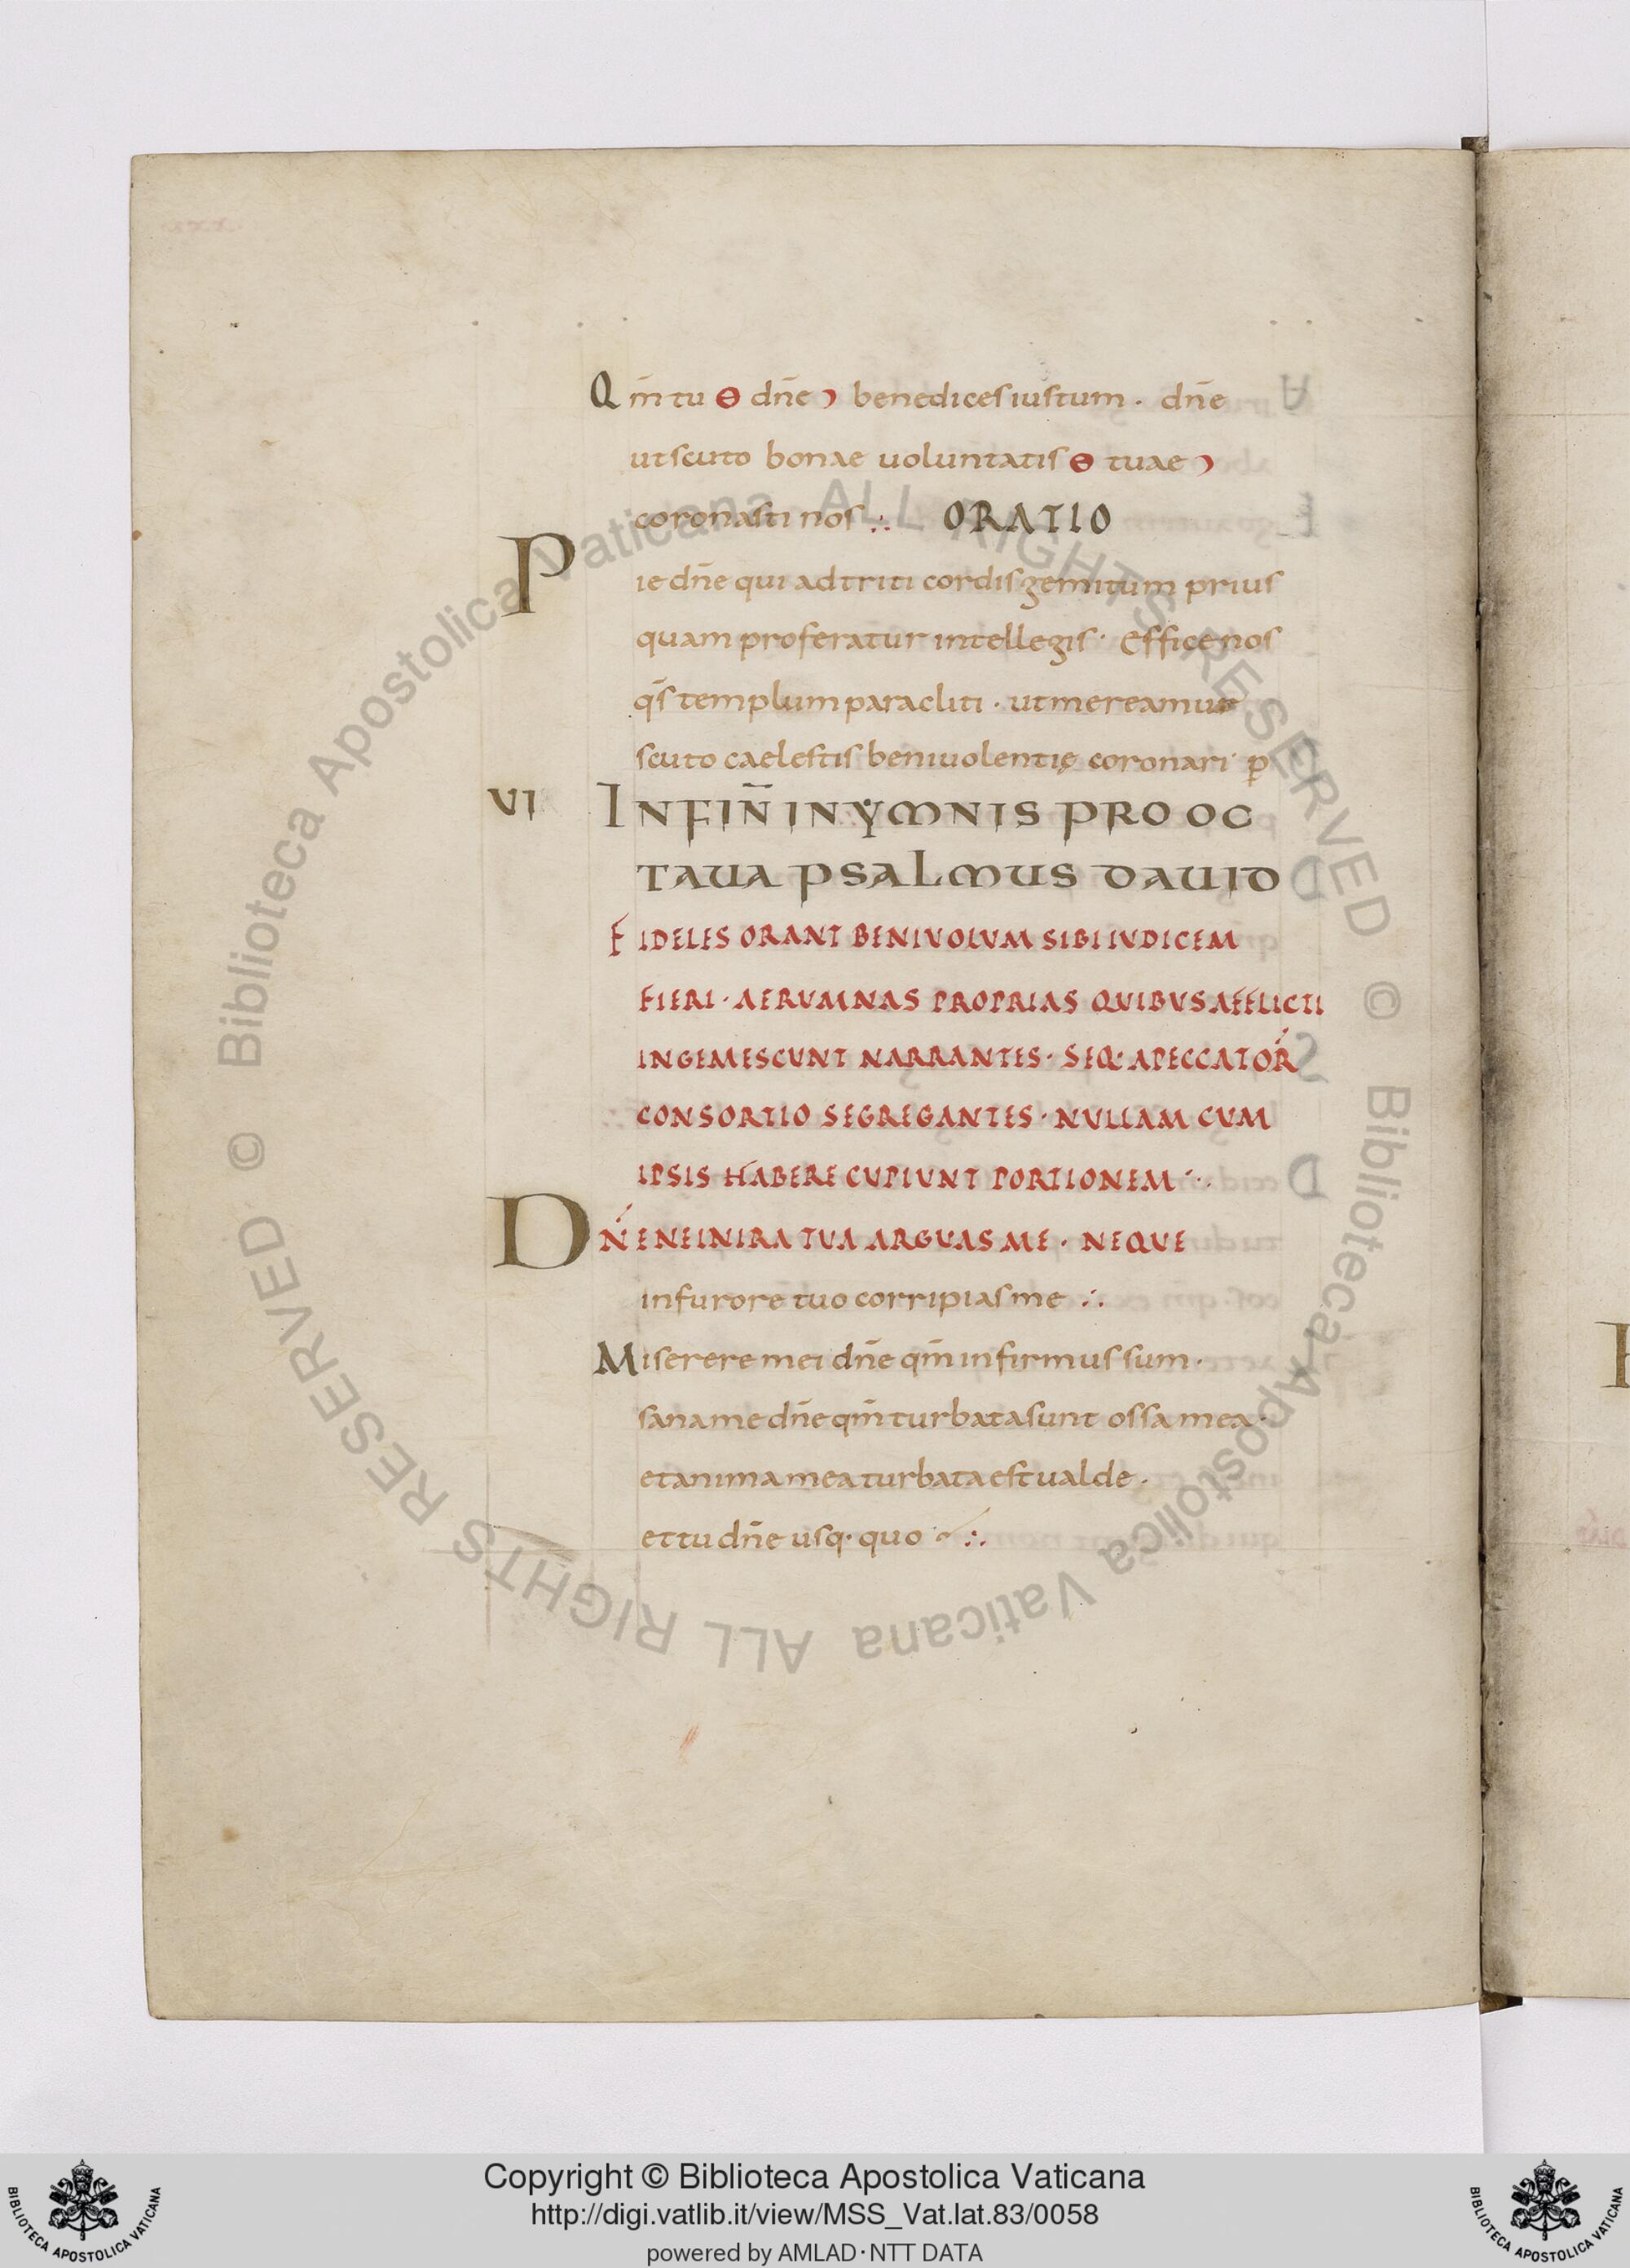 Qm̄ tu ɵ dn̄e ) benedices iustum · dn̄e
ut scuto bonae uoluntatis ɵ tuae )
coronasti nos ∴ ORATIO
Pie dn̄e qui adtriti cordis gemitum prius
quam proferatur intellegis · Effice nos
qs̄ templum paracliti · ut mereamur
scuto caelestis beniuolentię coronari · p̄
VI IN FIN̄ IN YMNIS PRO OC
TAUA PSALMUS DAUID
FIDELES ORANT BENIVOLVM SIBI IVDICEM
FIERI · AERUMNAS PROPRIAS QUIBVS AFFLICTI
INGEMESCVNT NARRANTES · SEQ· A PECCATOR̄
CONSORTIO SEGREGANTES · NVLLAM CUM
IPSIS HABERE CVPIVNT PORTIONEM ∴
DN̄E NE IN IRA TVA ARGVAS ME · NEQUE
in furore tuo corripias me ∴
Miserere mei dn̄e qm̄ infirmus sum ·
sana me dn̄e qm̄ turbata sunt ossa mea ·
et anima mea turbata est ualde ·
et tu dn̄e usq· quo ∴
© Biblioteca Apostolica Vaticana ALL RIGHTS RESERVED
© Biblioteca Apostolica Vaticana ALL RIGHTS RESERVED
Copyright © Biblioteca Apostolica Vaticana
http://digi.vatlib.it/view/MSS_Vat.lat.83/0058
powered by AMLAD·NTT DATA
BIBLIOTECA APOSTOLICA VATICANA
BIBLIOTECA APOSTOLICA VATICANA